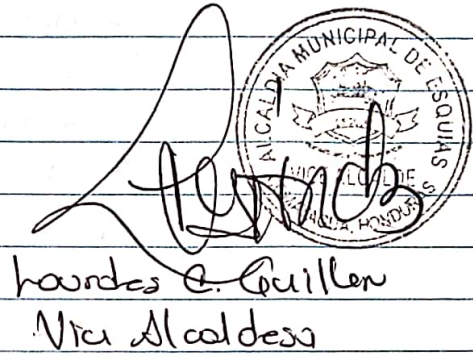 ALCALDIA MUNICIPAL DE ESQUIAS
VICE ALCALDE
HONDURAS
Lourdes C. Guillen
Vici Alcaldesa